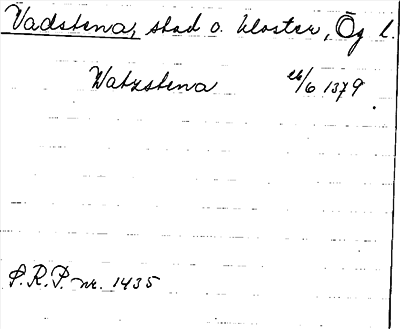 Vadstena, stad o. kloster, Ög l.
Watzstena 26/6 1379
S.R.P. nr. 1435